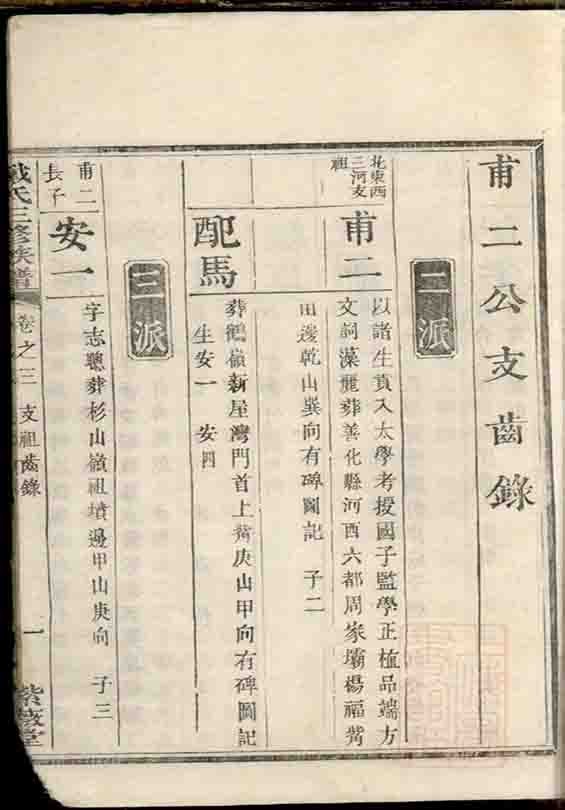 甫二公支齒錄
二派
北東西三河支祖
甫二
以諸生貢入太學考授國子監學正植品端方
文詞藻麗葬善化縣河西六都周家壩楊福嘴
田邊乾山巽向有碑圖記 子二
配馬
葬鶴嶺新屋灣門首上嘴庚山甲向有碑圖記
生安一 安四
三派
甫二長子
安一
字志聰葬杉山嶺祖墳邊甲山庚向 子三
戴氏三修族譜 卷之三 支祖齒錄 一 紫薇堂